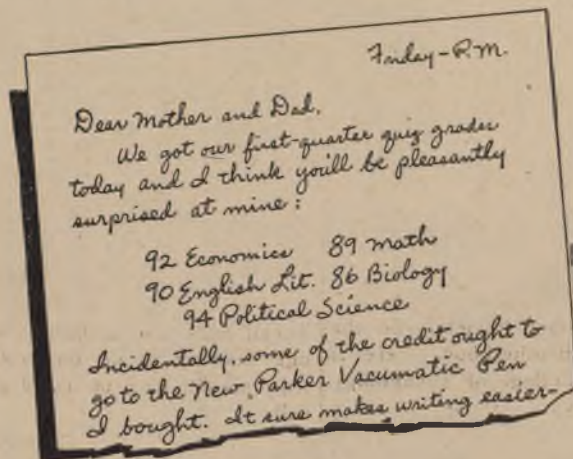 Friday-P.M.
Dear Mother and Dad,
We got our first-quarter quiz grades
today and I think you'll be pleasantly
surprised at mine:
92 Economics 89 Math
90 English Lit. 86 Biology
94 Political Science
Incidentally, some of the credit ought to
go to the New Parker Vacumatic Pen
I bought. It sure makes writing easier-